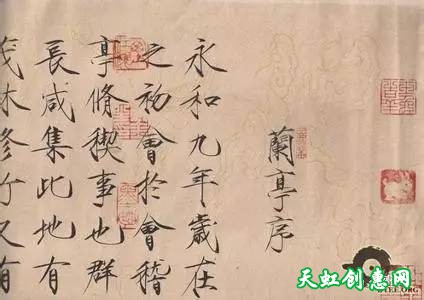 蘭亭序
永和九年歲在
之初會於會稽
亭脩稧事也群
長咸集此地有
茂木修竹又有
天虹创意网